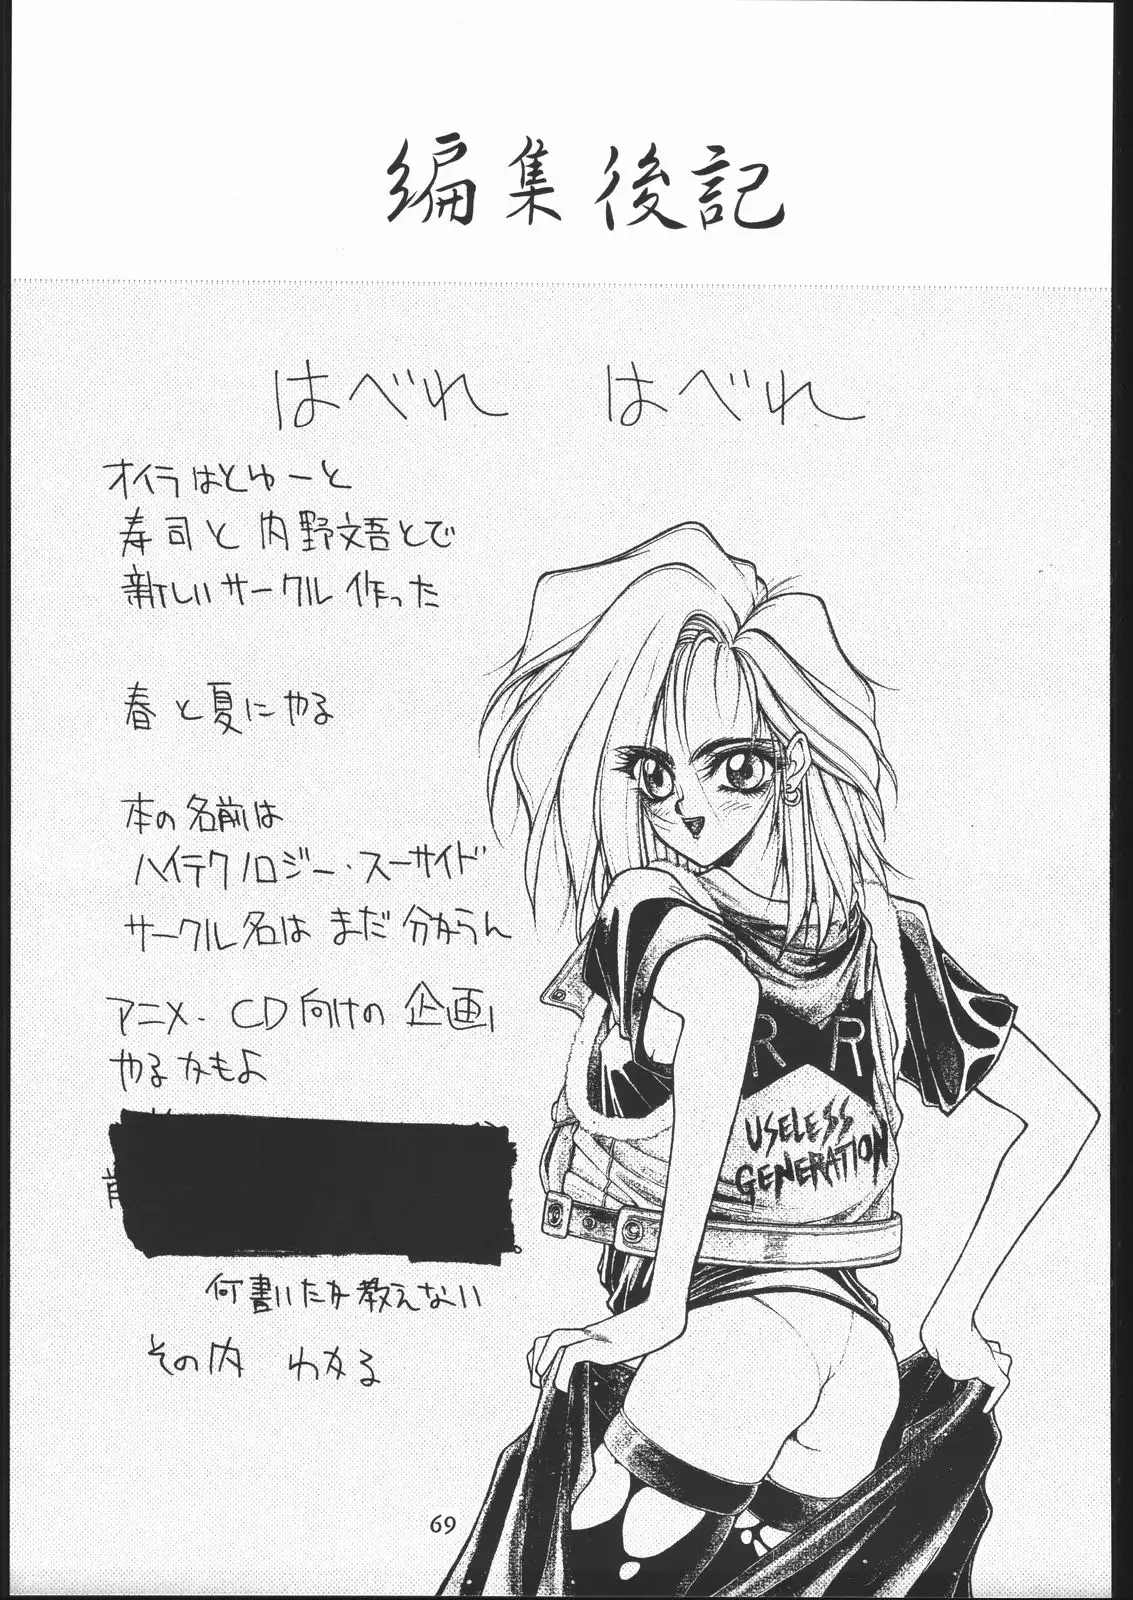 編集後記
はべれ はべれ
オイラはとゅーと
寿司と内野文吾とで
新しいサークル作った
春と夏にやる
本の名前は
ハイテクノロジー・スーサイド
サークル名はまだ分からん
アニメ・CD向けの企画
やるかもよ
何書いたか教えない
その内 わかる
R R
USELESS
GENERATION
69